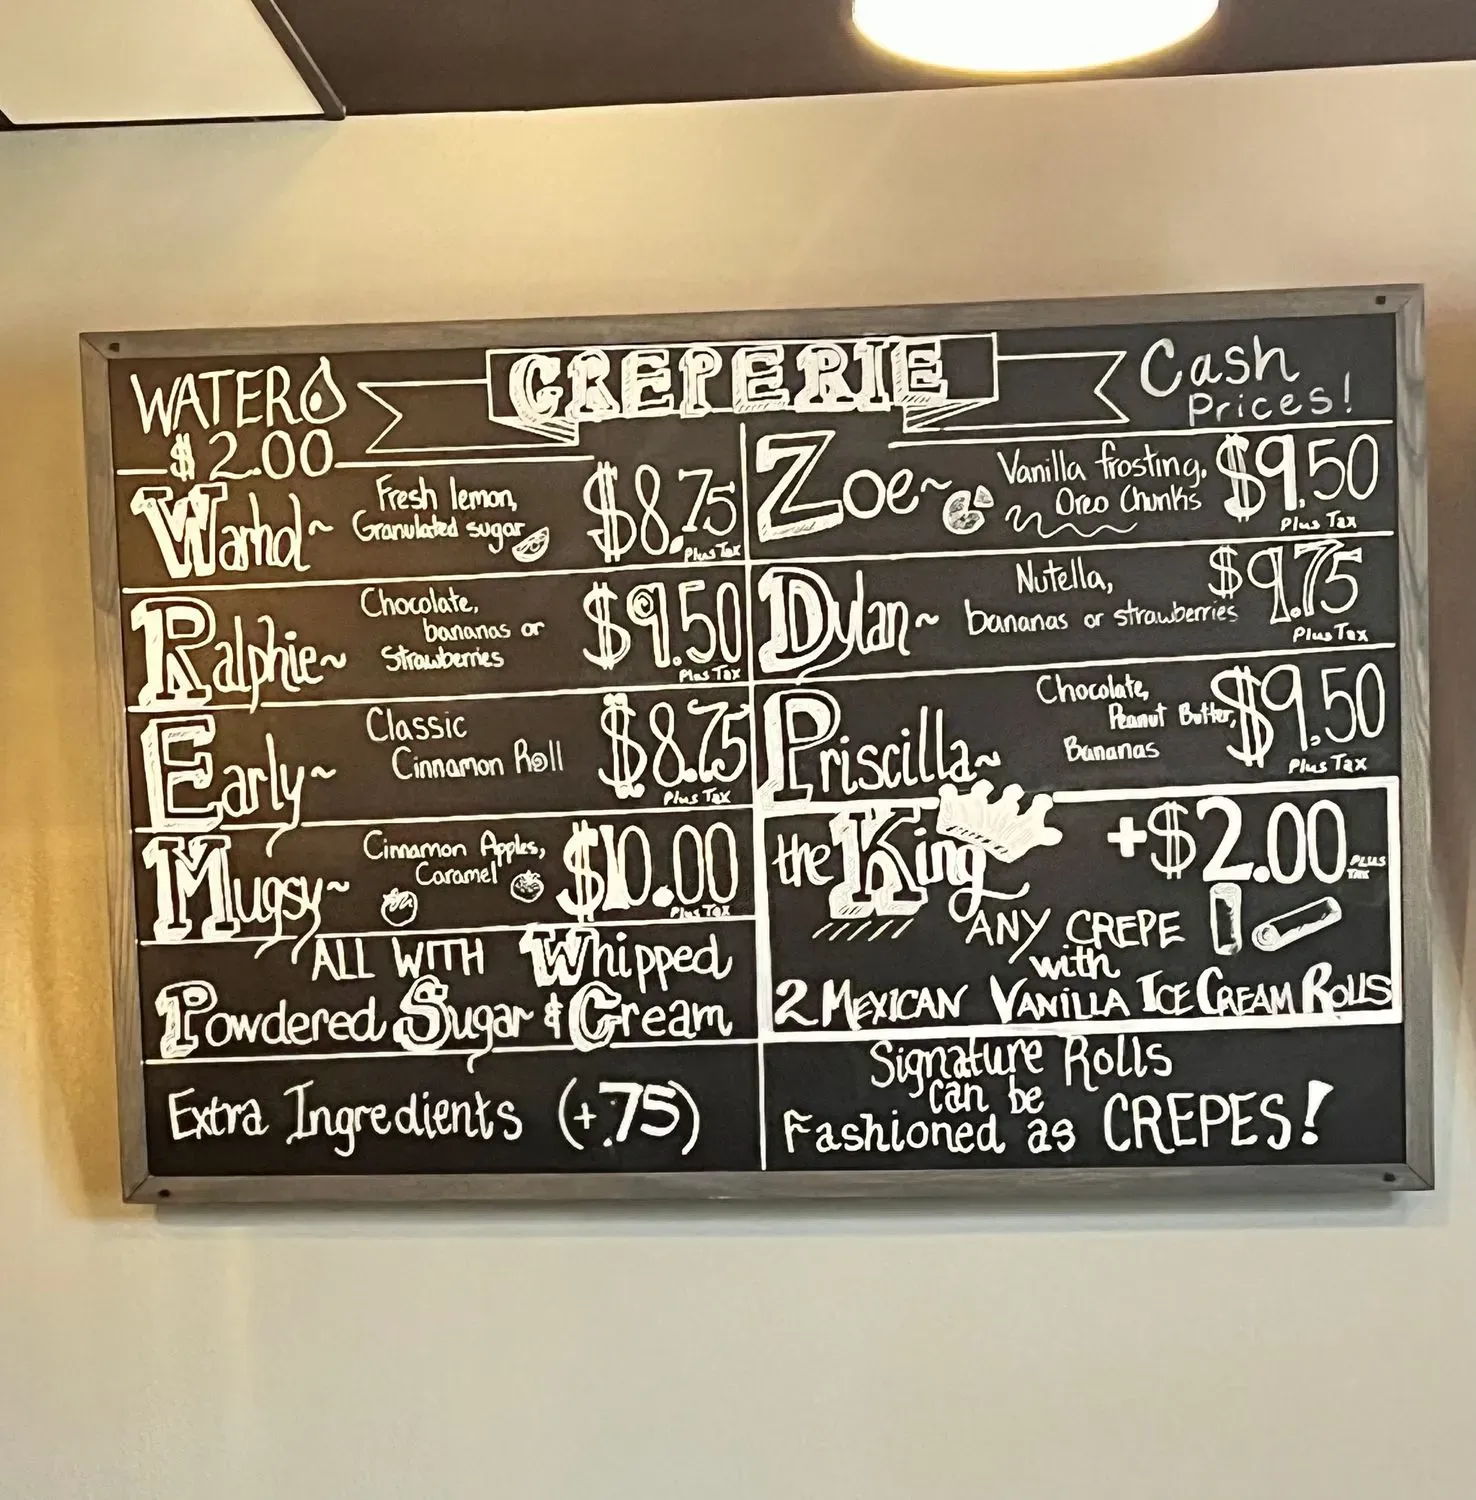 WATER
$2.00
CREPERIE
Cash
Prices!
Warhol~
Fresh lemon,
Granulated sugar
$8.75
Plus Tax
Ralphie~
Chocolate,
bananas or
Strawberries
$9.50
Plus Tax
Early~
Classic
Cinnamon Roll
$8.75
Plus Tax
Mugsy~
Cinnamon Apples,
Caramel
$10.00
Plus Tax
ALL WITH Whipped
Powdered Sugar & Cream
Extra Ingredients (+.75)
Zoe~
Vanilla frosting,
Oreo Chunks
$9.50
Plus Tax
Dylan~
Nutella,
bananas or strawberries
$9.75
Plus Tax
Priscilla~
Chocolate,
Peanut Butter,
Bananas
$9.50
Plus Tax
the King
+$2.00
PLUS
TAX
ANY CREPE
with
2 MEXICAN VANILLA ICE CREAM ROLLS
Signature Rolls
can be
Fashioned as CREPES!